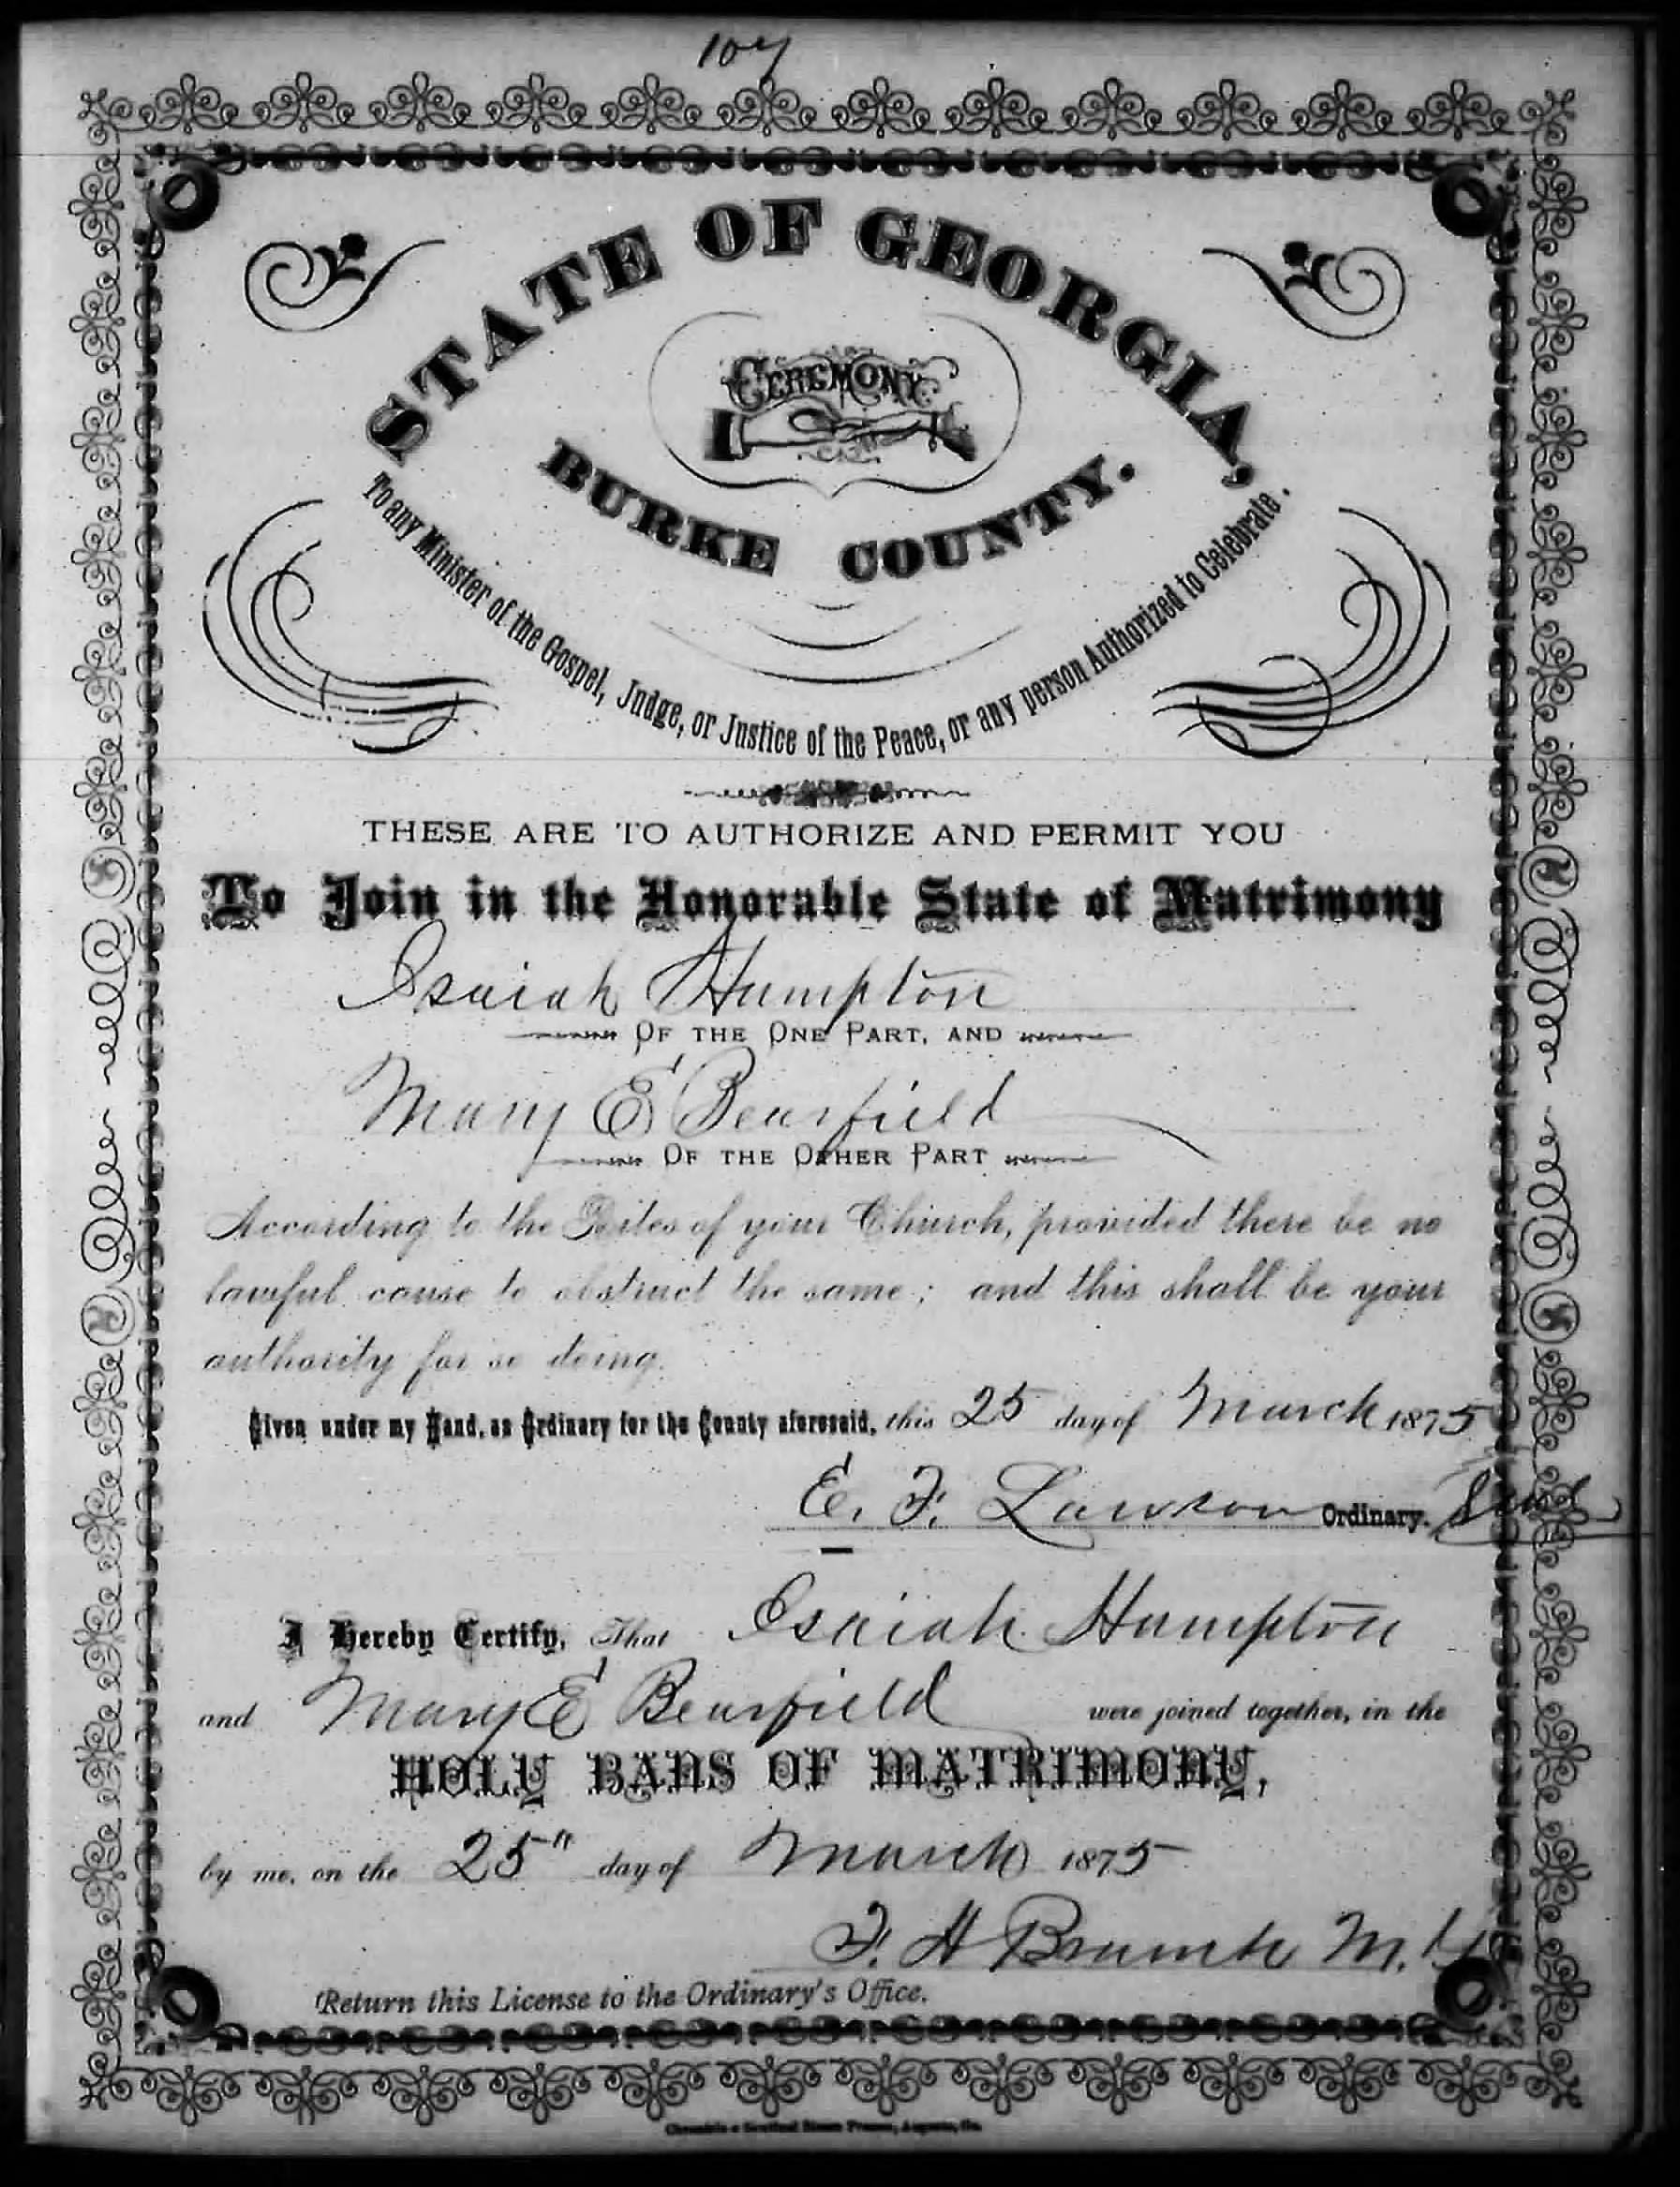 107
STATE OF GEORGIA,
CEREMONY
BURKE COUNTY.
To any Minister of the Gospel, Judge, or Justice of the Peace, or any person Authorized to Celebrate.
THESE ARE TO AUTHORIZE AND PERMIT YOU
To Join in the Honorable State of Matrimony
Isaiah Hampton
OF THE ONE PART, AND
Mary E Bearfield
OF THE OTHER PART
According to the Rites of your Church, provided there be no
lawful cause to obstruct the same; and this shall be your
authority for so doing.
Given under my Hand, as Ordinary for the County aforesaid, this 25 day of March 1875
E. F. Lawson Ordinary. Seal
I Hereby Certify, That Isaiah Hampton
and Mary E Bearfield were joined together, in the
HOLY BANS OF MATRIMONY,
by me, on the 25" day of March 1875
F. H M.
Return this License to the Ordinary's Office.
Chronicle & Sentinel Steam Presses, Augusta, Ga.